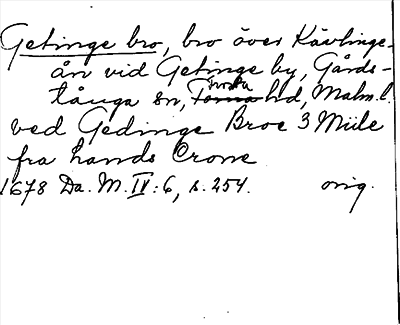 Getinge bro, bro över Kävlinge-
ån vid Getinge by, Gårds-
tånga sn, Torna hd, Malm. l.
ved Gedinge Broe 3 Miile
fra Lands Crone
1678 Da. M. IV: 6, s. 254. orig.